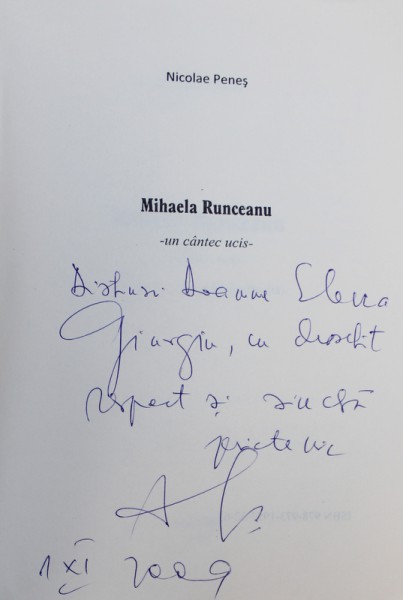 Nicolae Peneş
Mihaela Runceanu
-un cântec ucis-
Distinsei Doamne Elena
Giurgiu, cu deosebit
respect și sinceră
prietenie
1 XI 2009